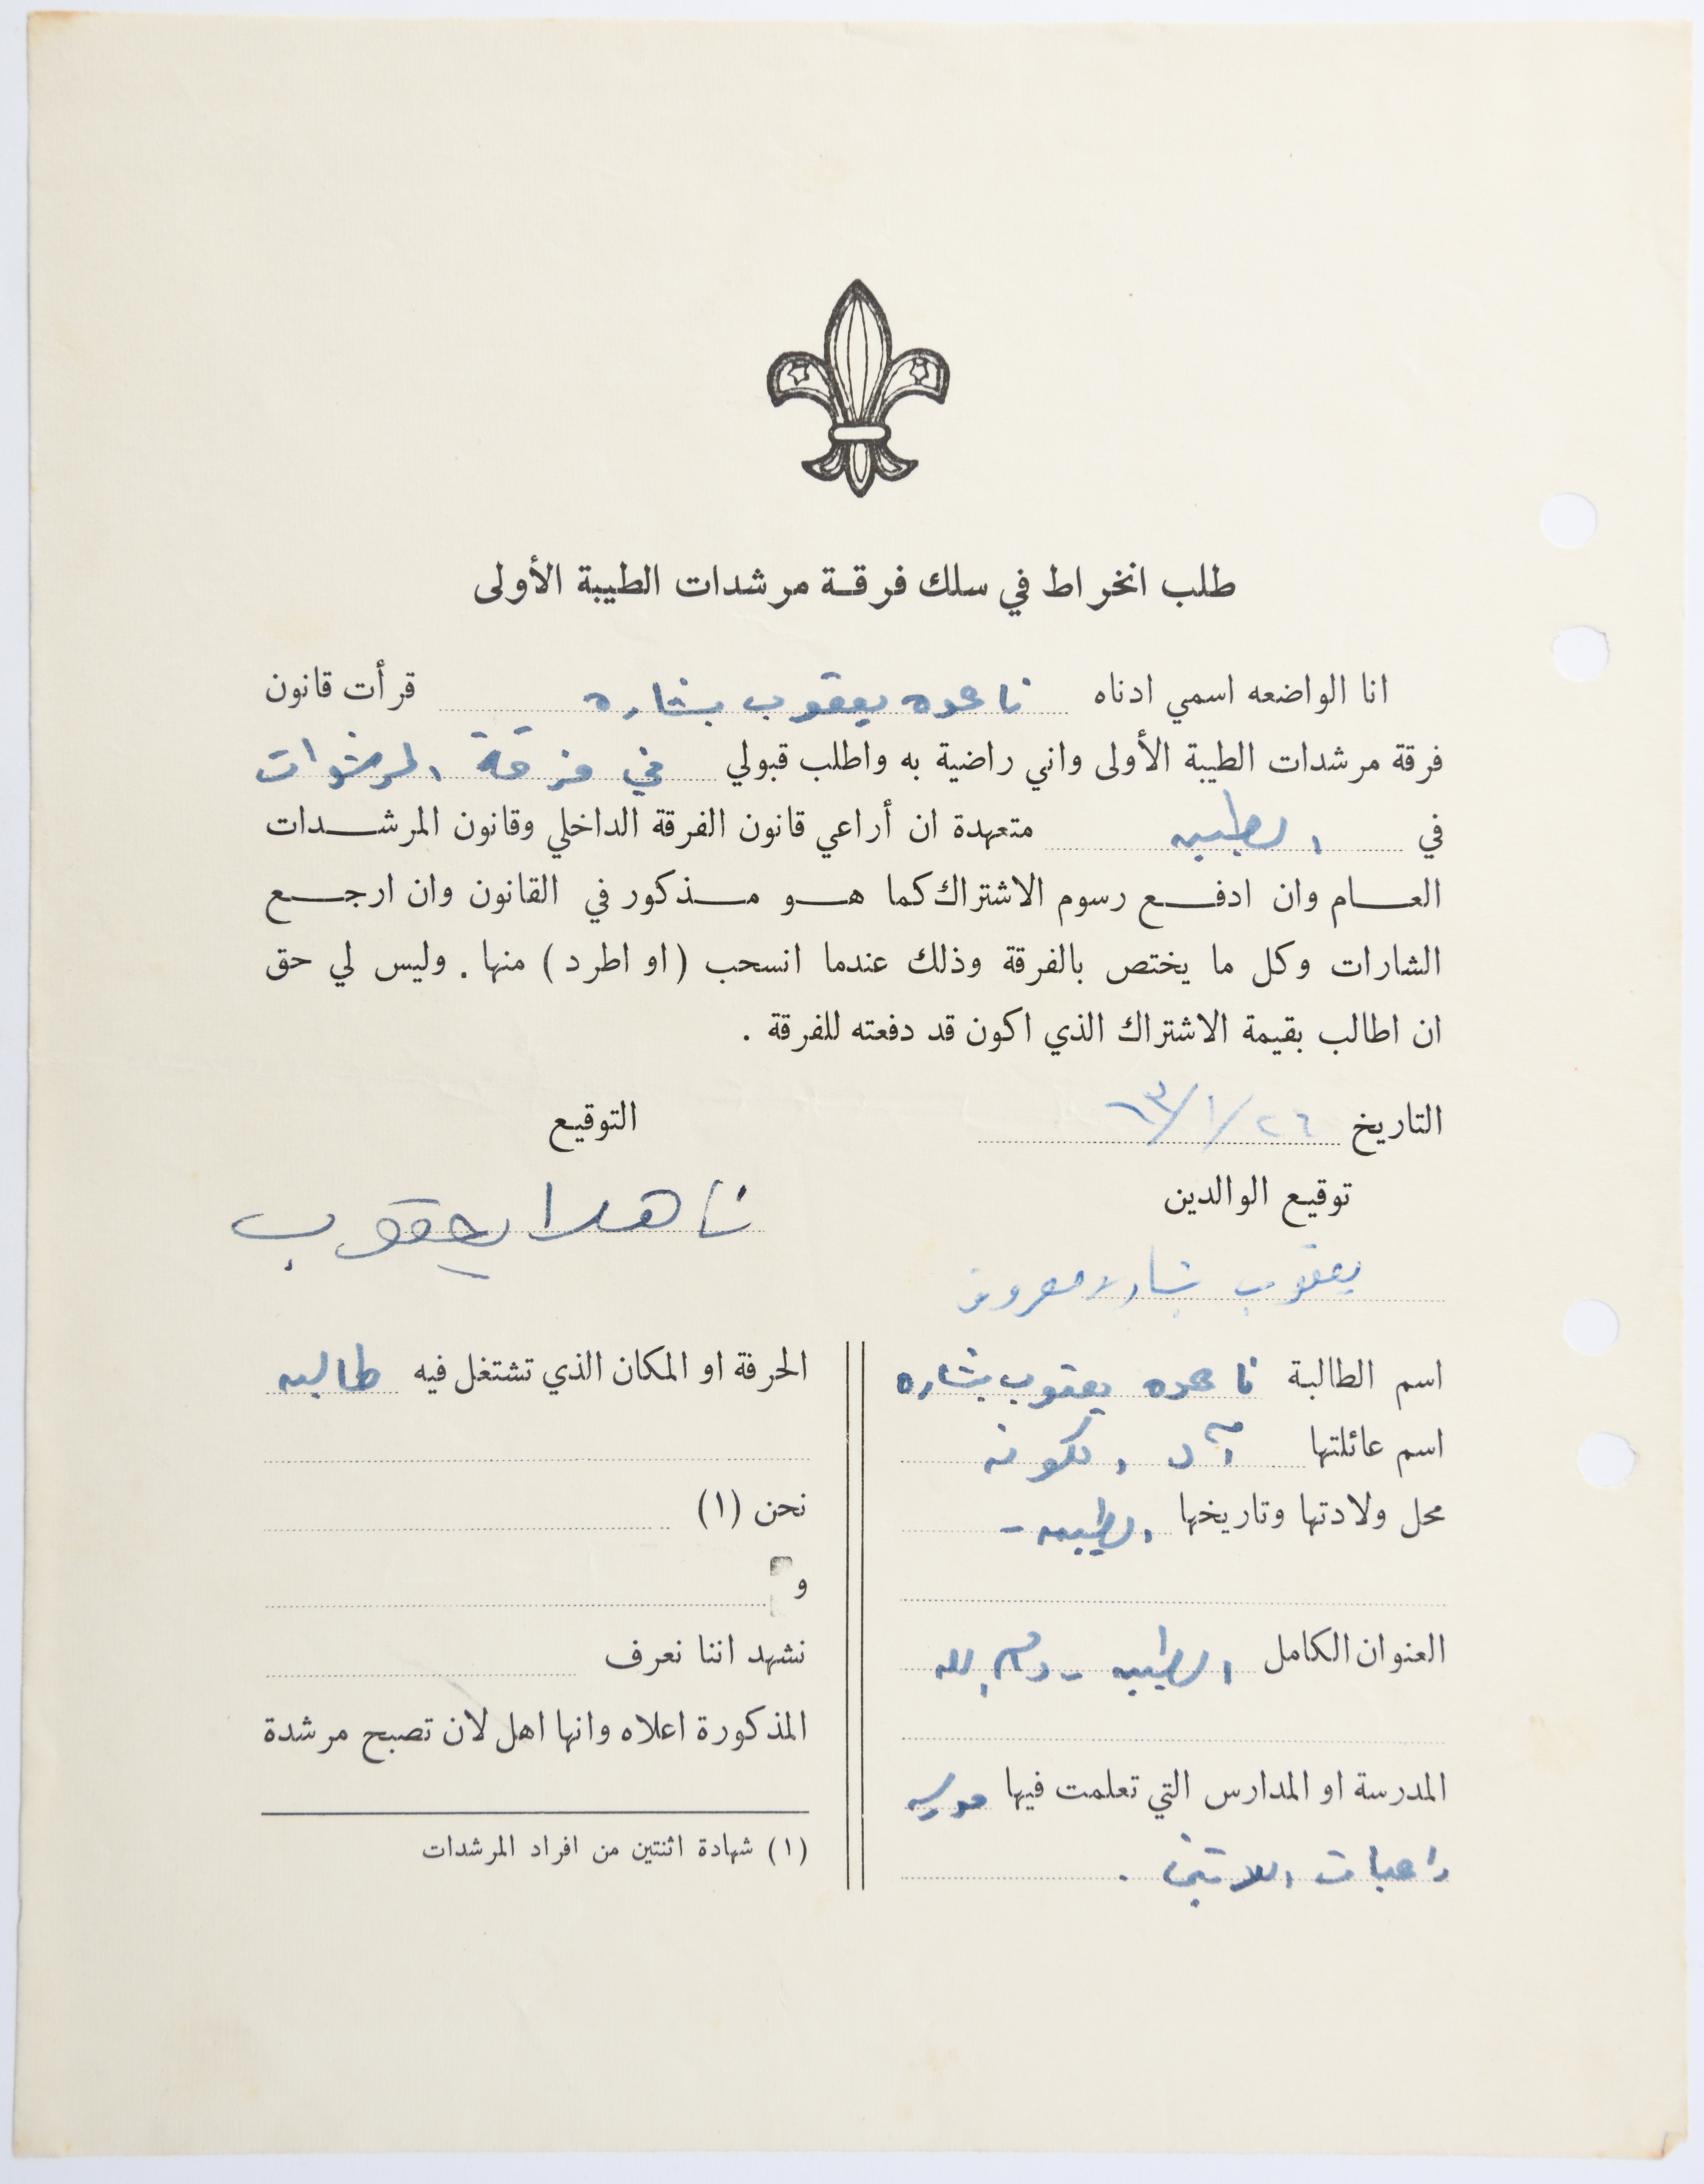 طلب انخراط في سلك فرقة مرشدات الطيبة الأولى
انا الواضعه اسمي ادناه ناهده يعقوب بشاره قرأت قانون
فرقة مرشدات الطيبة الأولى واني راضية به واطلب قبولي في فرقة المرشدات
في الطيبه متعهدة ان أراعي قانون الفرقة الداخلي وقانون المرشدات
العام وان ادفع رسوم الاشتراك كما هو مذكور في القانون وان ارجع
الشارات وكل ما يختص بالفرقة وذلك عندما انسحب (او اطرد) منها . وليس لي حق
ان اطالب بقيمة الاشتراك الذي اكون قد دفعته للفرقة .
التاريخ ٢٦/١/٦٣
التوقيع
ناهدا يعقوب
توقيع الوالدين
يعقوب بشاره معروف
اسم الطالبة ناهده يعقوب بشاره
اسم عائلتها
محل ولادتها وتاريخها الطيبه -
العنوان الكامل الطيبه - رام الله
المدرسة او المدارس التي تعلمت فيها مدرسه
راهبات اللاتين .
الحرفة او المكان الذي تشتغل فيه طالبه
نحن (١)
و
نشهد اننا نعرف
المذكورة اعلاه وانها اهل لان تصبح مرشدة
(١) شهادة اثنتين من افراد المرشدات